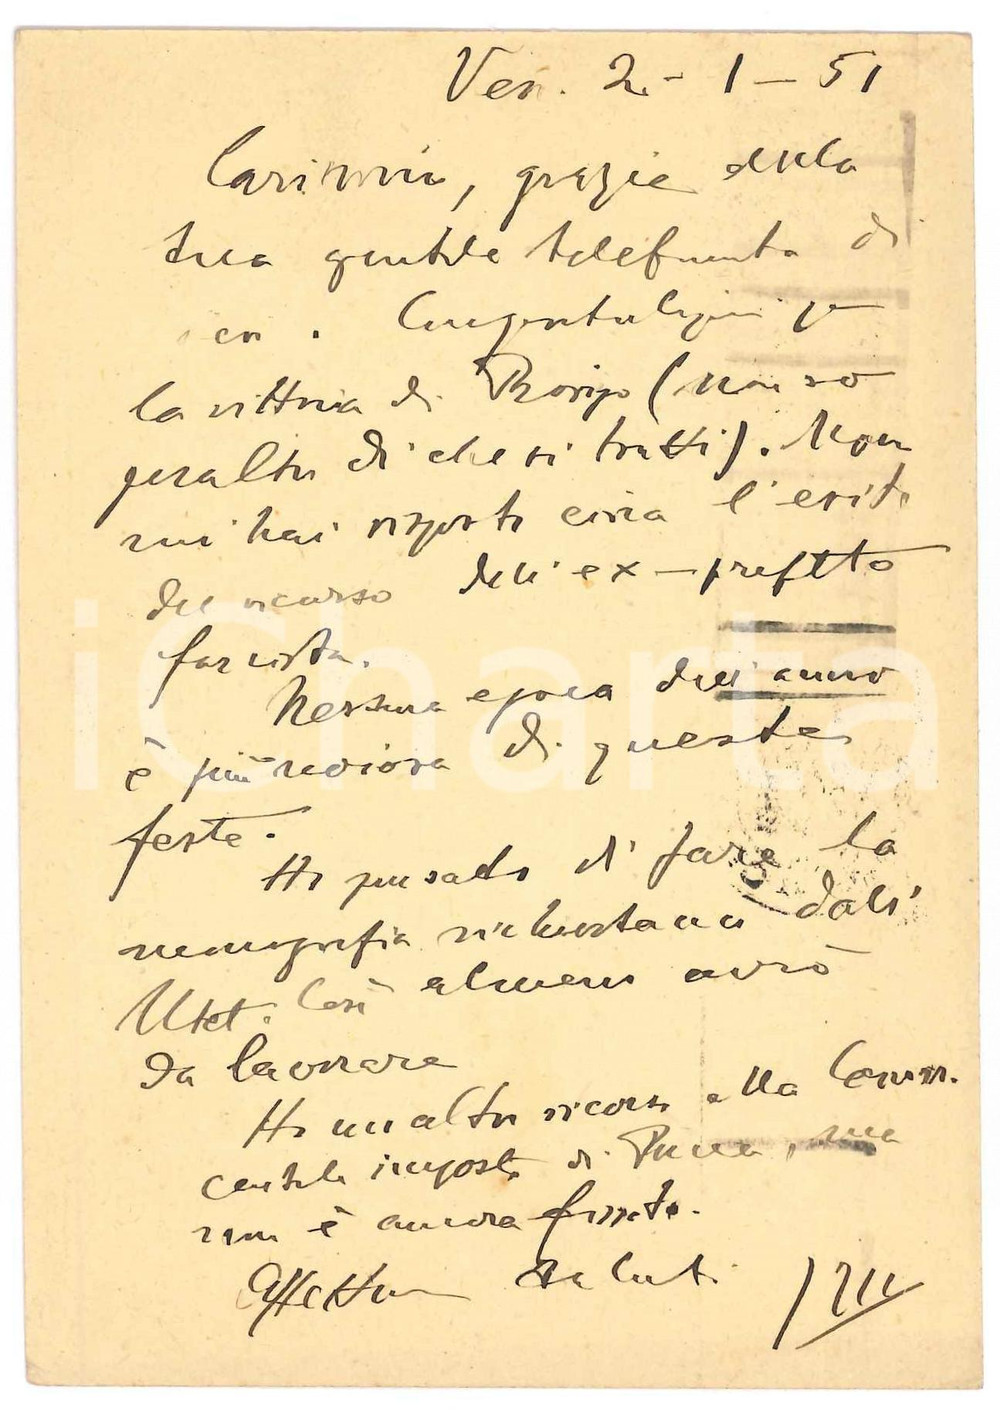 Ven. 2-1-51
Carissimo, grazie della
tua gentile telefonata di
ieri. Congratulazioni per
la vittoria di Rovigo (non so
peraltro di che si tratti). Non
mi hai risposto circa l'esito
del ricorso dell'ex-prefetto
fascista.
Nessuna epoca dell'anno
è più noiosa di queste
feste.
Ho pensato di fare la
monografia richiestami dall'
Utet. Così almeno avrò
da lavorare
Ho un altro ricorso alla Comm.
centrale imposte di Roma, ma
non è ancora fissato.
Affettuosi saluti
iCharta